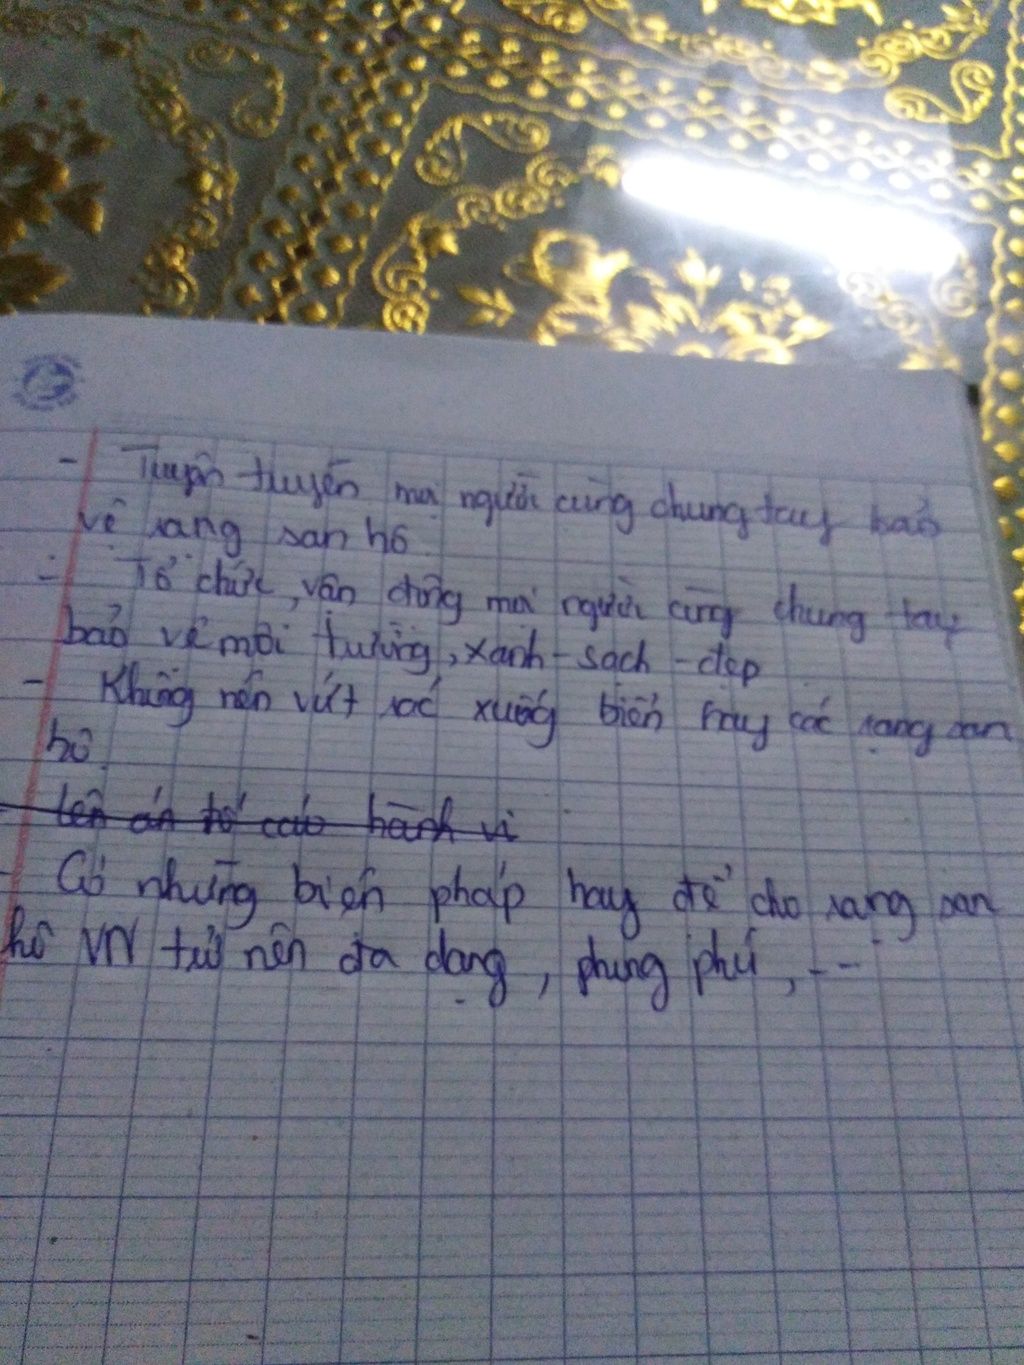 - Tuyên truyền mọi người cùng chung tay bảo
vệ rạng san hô.
- Tổ chức, vận động mọi người cùng chung tay
bảo vệ môi trường, xanh - sạch - đẹp
- Không nên vứt rác xuống biển hay các rạng san
hô.
- lên án tố cáo hành vi
- Có những biện pháp hay để cho rạng san
hô VN trở nên đa dạng, phong phú, ---